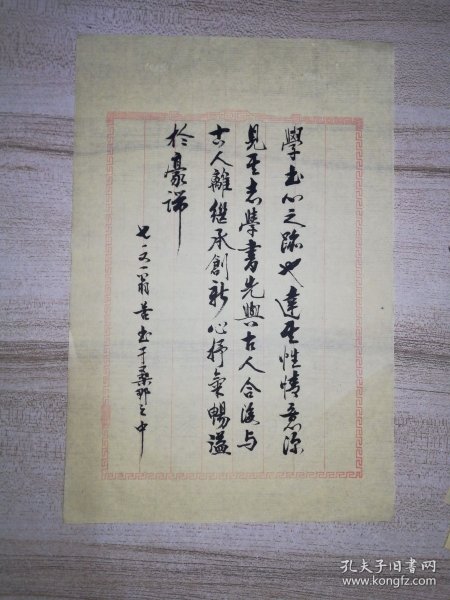 學書心之跡也達其性情意深
見其志學書先與古人合後与
古人離繼承創新心抒氣暢溢
於豪端
七一文翁 書于桑邨之中
孔夫子旧书网
www.kongfz.com